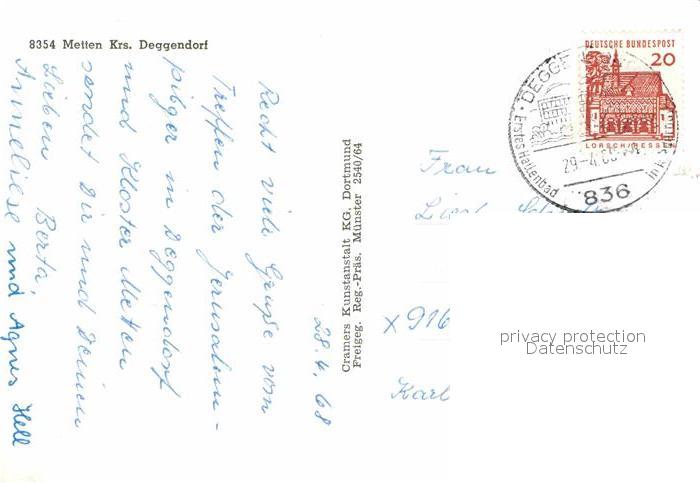 8354 Metten Krs. Deggendorf
28.4.68
Recht viele Grüße vom
Treffen der Jerusalem-
pilger in Deggendorf
und Kloster Metten
sendet Dir und Deinen
Lieben Berta,
Anneliese und Agnes Hell
Cramers Kunstanstalt KG. Dortmund
Freigeg. Reg.-Präs. Münster 2540/64
DEUTSCHE BUNDESPOST
20
LORSCH/HESSEN
DEGGE
Erstes Hallenbad
29-4.68
836
Frau
x 916
Karl
privacy protection
Datenschutz